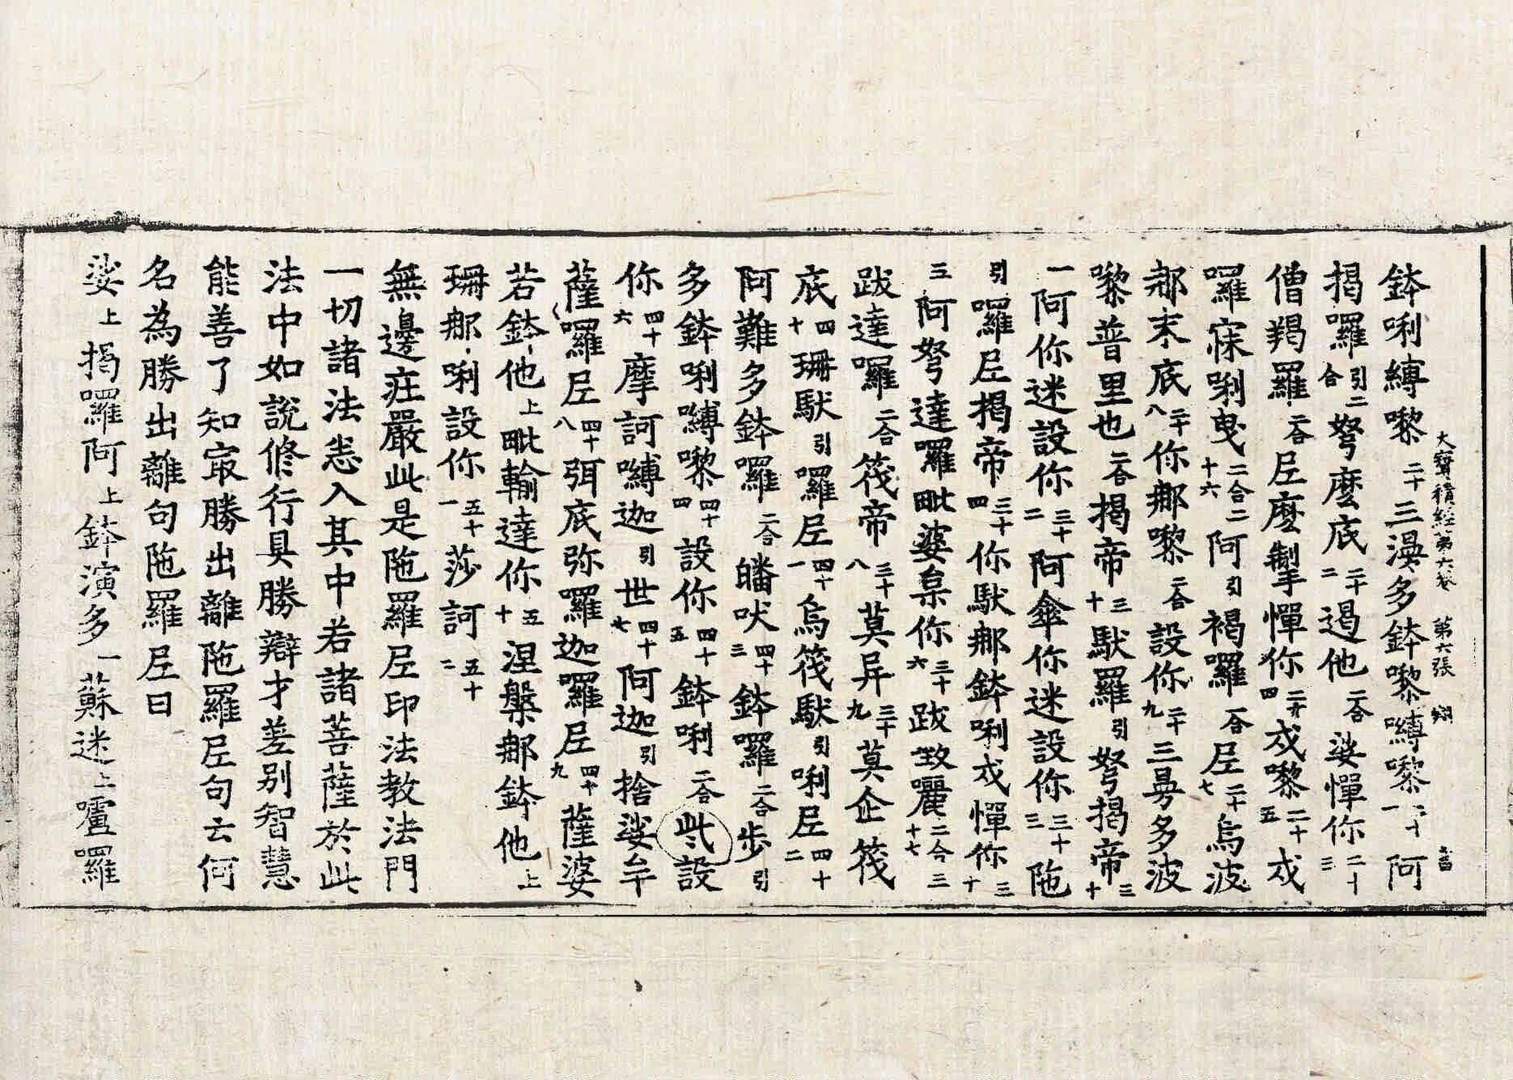 大寶積經第六卷 第六張 翔
鉢唎縛嚟二十三漫多鉢嚟縛嚟二十一阿
揭囉引二合弩麼底二十二遏他二合娑憚你二十三
僧羯囉二合尼麼掣憚你二十四戍嚟二十五戍
囉寐唎曳二合二十六阿引褐囉二合尼二十七烏波
那末底二十八你那嚟二合設你二十九三曼多波
嚟普里也二合揭帝三十馱羅引弩揭帝三十
一阿你迷設你三十二阿傘你迷設你三十三陁
引囉尼揭帝三十四你馱那鉢唎戍憚你三十
三阿弩達羅毗婆枲你三十六跋致麗二合三十七
跋達囉二合筏帝三十八莫异三十九莫企筏
底四十珊馱引囉尼四十一烏筏馱引唎尼四十二
阿難多鉢囉二合皤吠四十三鉢囉二合步引
多鉢唎嚩嚟四十四設你四十五鉢唎二合𠯗設
你四十六摩訶嚩迦引世四十七阿迦引捨娑牟
薩囉尼四十八弭底弥囉迦囉尼四十九薩婆
若鉢他上毗輸達你五十涅槃那鉢他上
珊那唎設你五十一莎訶五十二
無邊莊嚴此是陁羅尼印法教法門
一切諸法悉入其中若諸菩薩於此
法中如說修行具勝辯才差別智慧
能善了知冣勝出離陁羅尼句云何
名為勝出離句陁羅尼曰
娑上揭囉阿上鉢演多一蘇迷上嚧羅